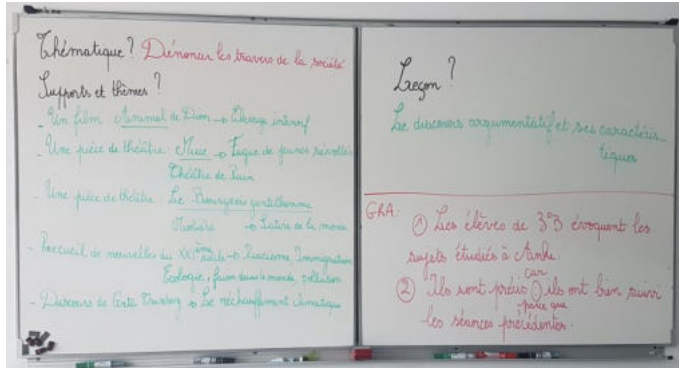 Thématique ? Dénoncer les travers de la société
Supports et thèmes ?
- Un film : Animal de Dion → Élevage intensif
- Une pièce de théâtre : → Fugue de jeunes révoltés
Théâtre de
- Une pièce de théâtre : Le Bourgeois gentilhomme
Molière → Satire de la
- Recueil de nouvelles du XXIème siècle → Racisme, Immigration
Écologie, faim dans le monde, pollution
- Discours de Greta Thunberg → Le réchauffement climatique
Leçon ?
Le discours argumentatif et ses caractéris-
tiques
GRA :
① Les élèves de 3°3 évoquent les
sujets étudiés à
car
② Ils sont précis : ils ont bien suivi
parce que
les séances précédentes.